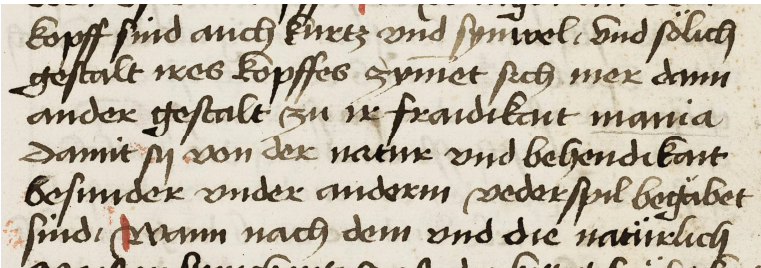 kopff sind auch kurtz vnd synwel / vnd sölich
gestalt ires kopffes zymet sich mer dann
ander gestalt zu ir fraidikait mania
Damit sy von der natur vnd behendikait
besunder vnder anderm vederspil begabet
sind / Wann nach dem vnd die natürlich